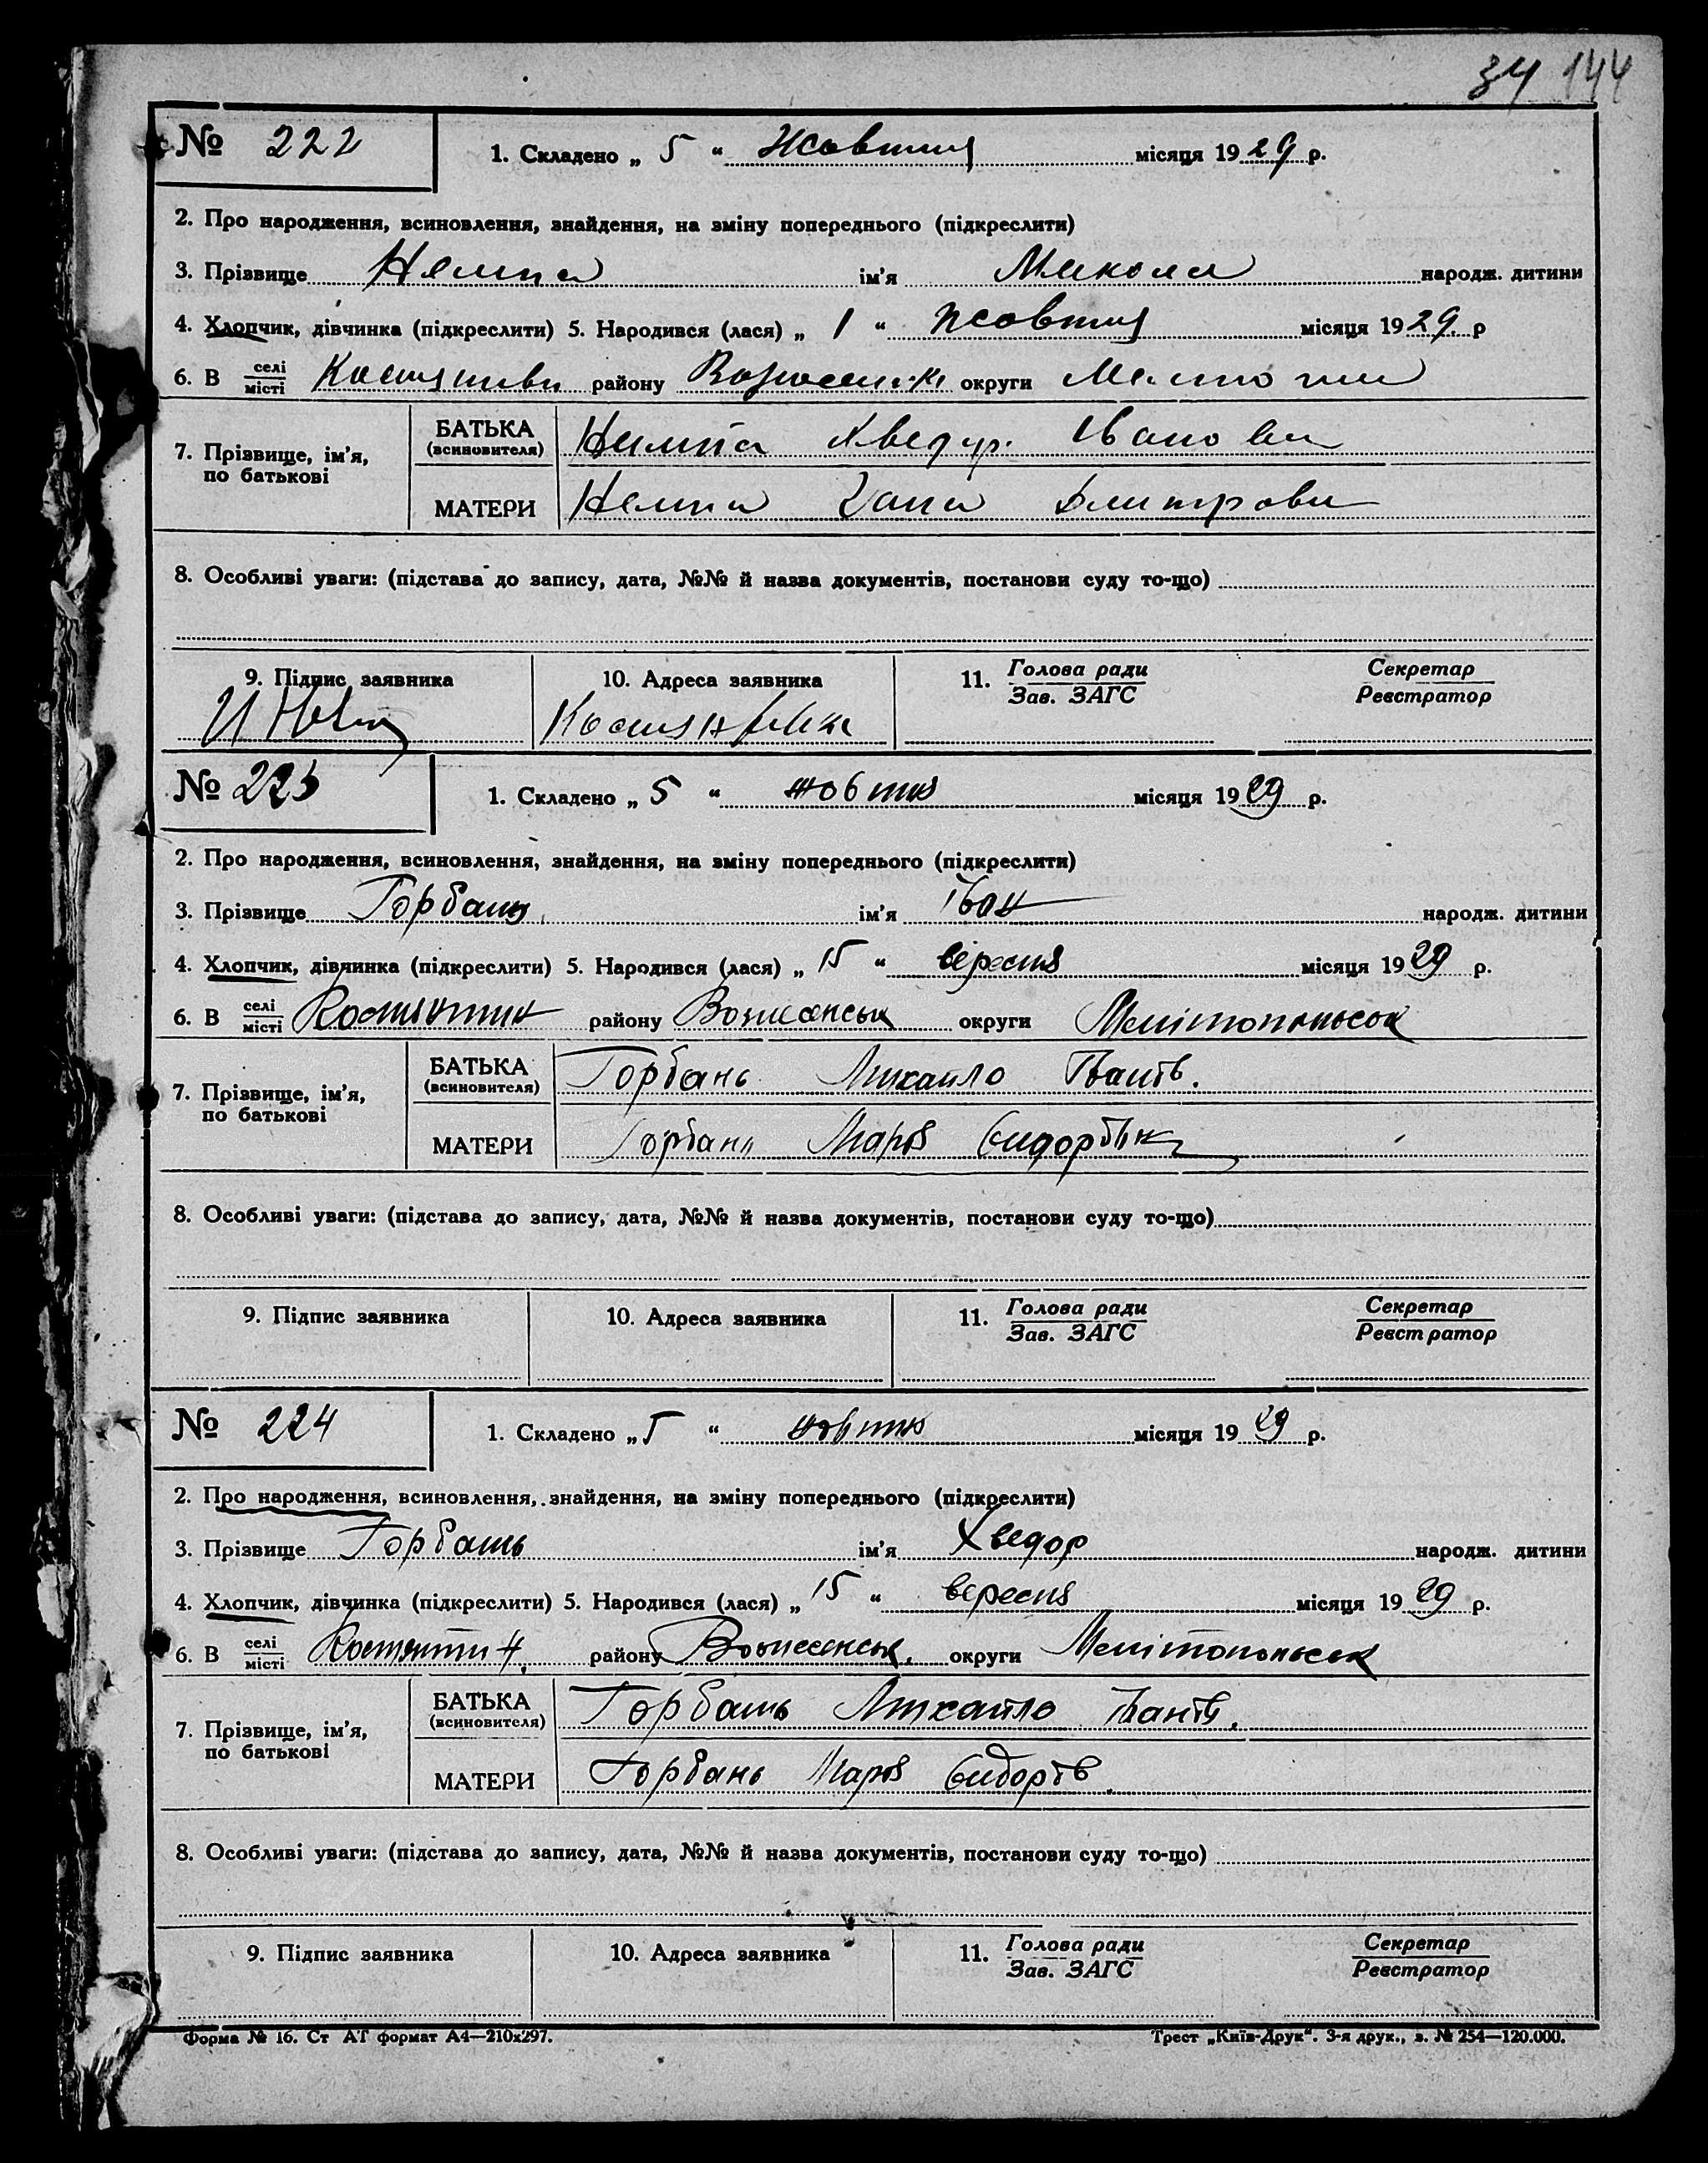 34 144
№ 222 1. Складено „ 5 “ Жовтня місяця 1929 р.
2. Про народження, всиновлення, знайдення, на зміну попереднього (підкреслити)
3. Прізвище ім'я Микола народж. дитини
4. Хлопчик, дівчинка (підкреслити) 5. Народився (лася) „ 1 “ жовтня місяця 1929 р
6. В селі/місті району округи
7. Прізвище, ім'я, по батькові
БАТЬКА (всиновителя) Хведур Іванови
МАТЕРИ Дмитрови
8. Особливі уваги: (підстава до запису, дата, №№ й назва документів, постанови суду то-що)
9. Підпис заявника 10. Адреса заявника 11. Голова ради/Зав. ЗАГС Секретар/Реєстратор
№ 223 1. Складено „ 5 “ жовтня місяця 1929 р.
2. Про народження, всиновлення, знайдення, на зміну попереднього (підкреслити)
3. Прізвище Горбань ім'я Іван народж. дитини
4. Хлопчик, дівчинка (підкреслити) 5. Народився (лася) „ 15 “ вересня місяця 1929 р.
6. В селі/місті Костянтин району Вознесенськ округи Мелітопольськ
7. Прізвище, ім'я, по батькові
БАТЬКА (всиновителя) Горбань Михайло Іванів.
МАТЕРИ Горбань Марія
8. Особливі уваги: (підстава до запису, дата, №№ й назва документів, постанови суду то-що)
9. Підпис заявника 10. Адреса заявника 11. Голова ради/Зав. ЗАГС Секретар/Реєстратор
№ 224 1. Складено „ 5 “ жовтня місяця 1929 р.
2. Про народження, всиновлення, знайдення, на зміну попереднього (підкреслити)
3. Прізвище Горбань ім'я Хведор народж. дитини
4. Хлопчик, дівчинка (підкреслити) 5. Народився (лася) „ 15 “ вересня місяця 1929 р.
6. В селі/місті Костянтин. району Вознесенськ. округи Мелітопольськ
7. Прізвище, ім'я, по батькові
БАТЬКА (всиновителя) Горбань Михайло Іванів.
МАТЕРИ Горбань Марія Сидорів.
8. Особливі уваги: (підстава до запису, дата, №№ й назва документів, постанови суду то-що)
9. Підпис заявника 10. Адреса заявника 11. Голова ради/Зав. ЗАГС Секретар/Реєстратор
Форма № 16. Ст АТ формат А4—210х297. Трест „Київ-Друк“. 3-я друк., з. № 254—120.000.